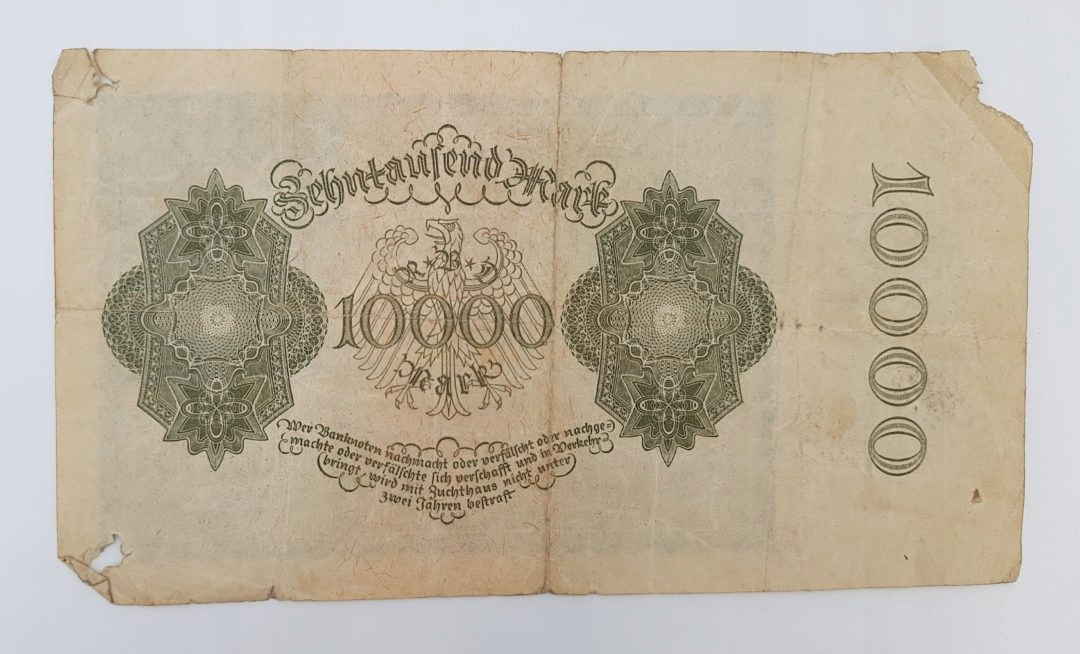 Zehntausend Mark
R·B·D
10000
Mark
Wer Banknoten nachmacht oder verfälscht oder nachge-
machte oder verfälschte sich verschafft und in Verkehr
bringt, wird mit Zuchthaus nicht unter
zwei Jahren bestraft
10000